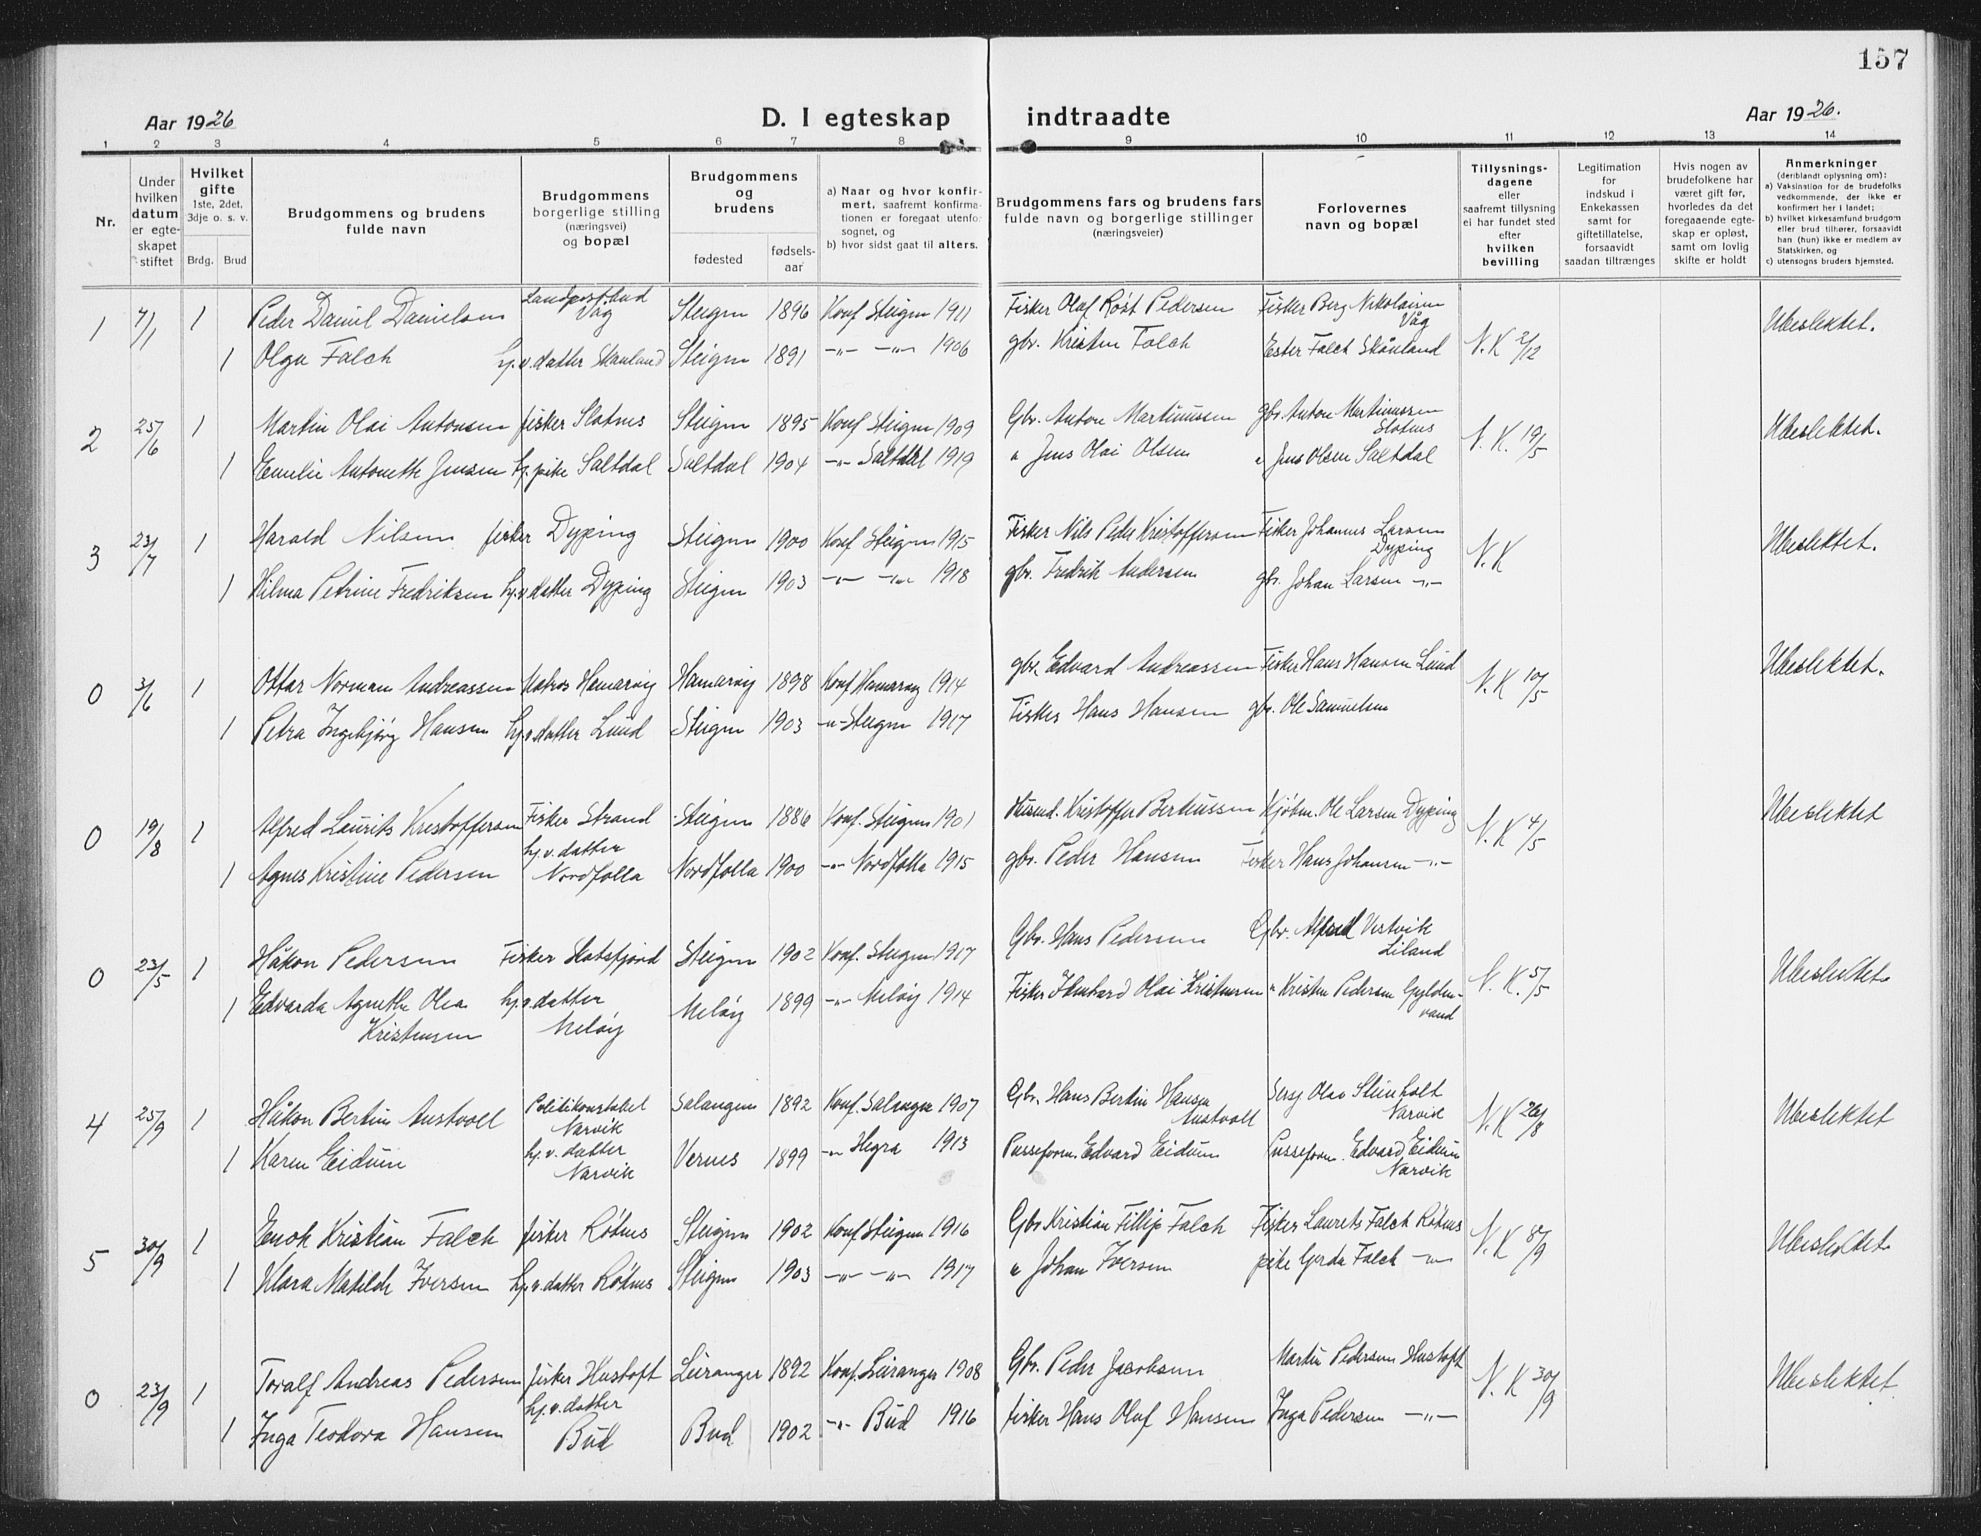 157
Aar 1926 D. I egteskap indtraadte Aar 1926.
1 2 3 4 5 6 7 8 9 10 11 12 13 14
Nr.
Under hvilken datum er egteskapet stiftet
Hvilket gifte 1ste, 2det, 3dje o. s. v.
Brdg. Brud
Brudgommens og brudens fulde navn
Brudgommens borgerlige stilling (næringsvei) og bopæl
Brudgommens og brudens
fødested
fødselsaar
a) Naar og hvor konfirmert, saafremt konfirmationen er foregaat utenfor sognet, og
b) hvor sidst gaat til alters.
Brudgommens fars og brudens fars fulde navn og borgerlige stillinger (næringsveier)
Forlovernes navn og bopæl
Tillysningsdagene eller saafremt tillysning ei har fundet sted efter hvilken bevilling
Legitimation for indskud i Enkekassen samt for giftetillatelse, forsaavidt saadan tiltrænges
Hvis nogen av brudefolkene har været gift før, hvorledes da det foregaaende egteskap er opløst, samt om lovlig skifte er holdt
Anmerkninger (deriblandt oplysning om):
a) Vaksination for de brudefolks vedkommende, der ikke er konfirmert her i landet;
b) hvilket kirkesamfund brudgom eller brud tilhører, forsaavidt han (hun) ikke er medlem av Statskirken, og
c) utensogns bruders hjemsted.
1 7/1 1 Peder Daniel Danielsen Landpostbud Våg Steigen 1896 Konf Steigen 1911 Fisker Olaf Røst Pedersen Fisker Berg Nikolaisen Våg N.K 2/12 Ubeslektet.
1 Olga Falch hj.v. datter Skånland Steigen 1891 -"- -"- 1906 gbr. Kristen Falch Ester Falch Skånland
2 25/6 1 Martin Olai Antonsen fisker Slotnes Steigen 1895 Konf Steigen 1909 Gbr. Anton Martinussen gbr. Anton Martinussen Slotnes N.K. 19/5 Ubeslektet.
1 Emelie Antonette Jensen hj. pike Saltdal Saltdal 1904 -"- Saltdal 1919 " Jens Olai Olsen " Jens Olsen Saltdal
3 23/7 1 Harald Nilsen fisker Dyping Steigen 1900 Konf Steigen 1915 Fisker Nils Peder Kristoffersen Fisker Johannes Larsen Dyping N.K Ubeslektet.
1 Hilma Petrine Fredriksen hj.v datter Dyping Steigen 1903 -"- -"- 1918 gbr. Fredrik Andersen gbr. Johan Larsen -"-
0 3/6 1 Ottar Norman Andreassen Matros Hamarøy Hamarøy 1898 Konf Hamarøy 1914 gbr. Edvard Andreassen Fisker Hans Hansen Lund N.K 10/5 Ubeslektet.
1 Petra Ingebjørg Hansen hj.v datter Lund Steigen 1903 -"- Steigen 1917 Fisker Hans Hansen gbr. Ole Samuelsen
0 19/8 1 Alfred Laurits Kristoffersen Fisker Strand Steigen 1886 Konf. Steigen 1901 Husmd. Kristoffer Bertiussen Kjøbm. Ole Larsen Dyping N.K 4/5 Ubeslektet
1 Agnes Kristine Pedersen hj.v. datter Nordfolla Nordfolla 1900 -"- Nordfolla 1915 gbr. Peder Hansen Fisker Hans Johansen -"-
0 23/5 1 Håkon Pedersen Fisker Slotsfjord Steigen 1902 Konf. Steigen 1917 Gbr. Hans Pedersen Gbr. Alfred Vestvik Liland N.K. 5/5 Ubeslektet
1 Edvarda Agnethe Olea Kristensen hj.v datter Meløy Meløy 1899 -"- Meløy 1914 Fisker Olai Kristensen " Kristen Pedersen Gyldenvand
4 25/9 1 Håkon Bertin Austvoll Politikonstabel Narvik Salangen 1892 Konf. Salangen 1907 Gbr. Hans Bertin Hansen Austvoll Sersj Olav Steinholt Narvik N.K 26/8 Ubeslektet
1 Karen Eidum hj.v. datter Narvik Vernes 1899 -"- Hegra 1913 Pusseform. Edvard Eidum Pusseform. Edvard Eidum Narvik
5 30/9 1 Enok Kristian Falch fisker Røtnes Steigen 1902 Konf Steigen 1916 Gbr Kristian Fillip Falch Fisker Laurets Falch Røtnes N.K 8/9 Ubeslektet
1 Klara Matilde Iversen hj.v. datter Røtnes Steigen 1903 -"- -"- 1917 " Johan Iversen pike Gerda Falch -"-
0 23/9 1 Toralf Andreas Pedersen fisker Hustoft Leiranger 1892 Konf. Leiranger 1908 Gbr. Peder Jacobsen Martin Pedersen Hustoft N.K 30/9 Ubeslektet
1 Inga Teodora Hansen hj.v. datter Bud Bud 1902 -"- Bud 1916 fisker Hans Olaf Hansen Inga Pedersen -"-